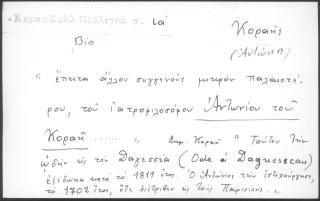 Κοραῆ Συλλ Προλεγομ σ. ια'
Κοραῆς
(Ἀντώνιο)
Βίο
"ἔπειτα ἄλλου συγγενοῦς μικρὸν παλαιοτέ-
ρου, τοῦ ἰατροφιλοσόφου Ἀντωνίου τοῦ
Κοραῆ ..... " Σημ. Κοραῆ "Τούτου τὴν
ᾠδὴν εἰς τὸν Δαγεσσὼ (Ode à Daguesseau)
ἐξέδωκα κατὰ τὸ 1819 ἔτος. Ὁ Ἀντώνιος τὴν ἐστιχούργησε,
τὸ 1702 ἔτος, ὅτε διέτριβεν εἰς τοὺς Παρισίους."